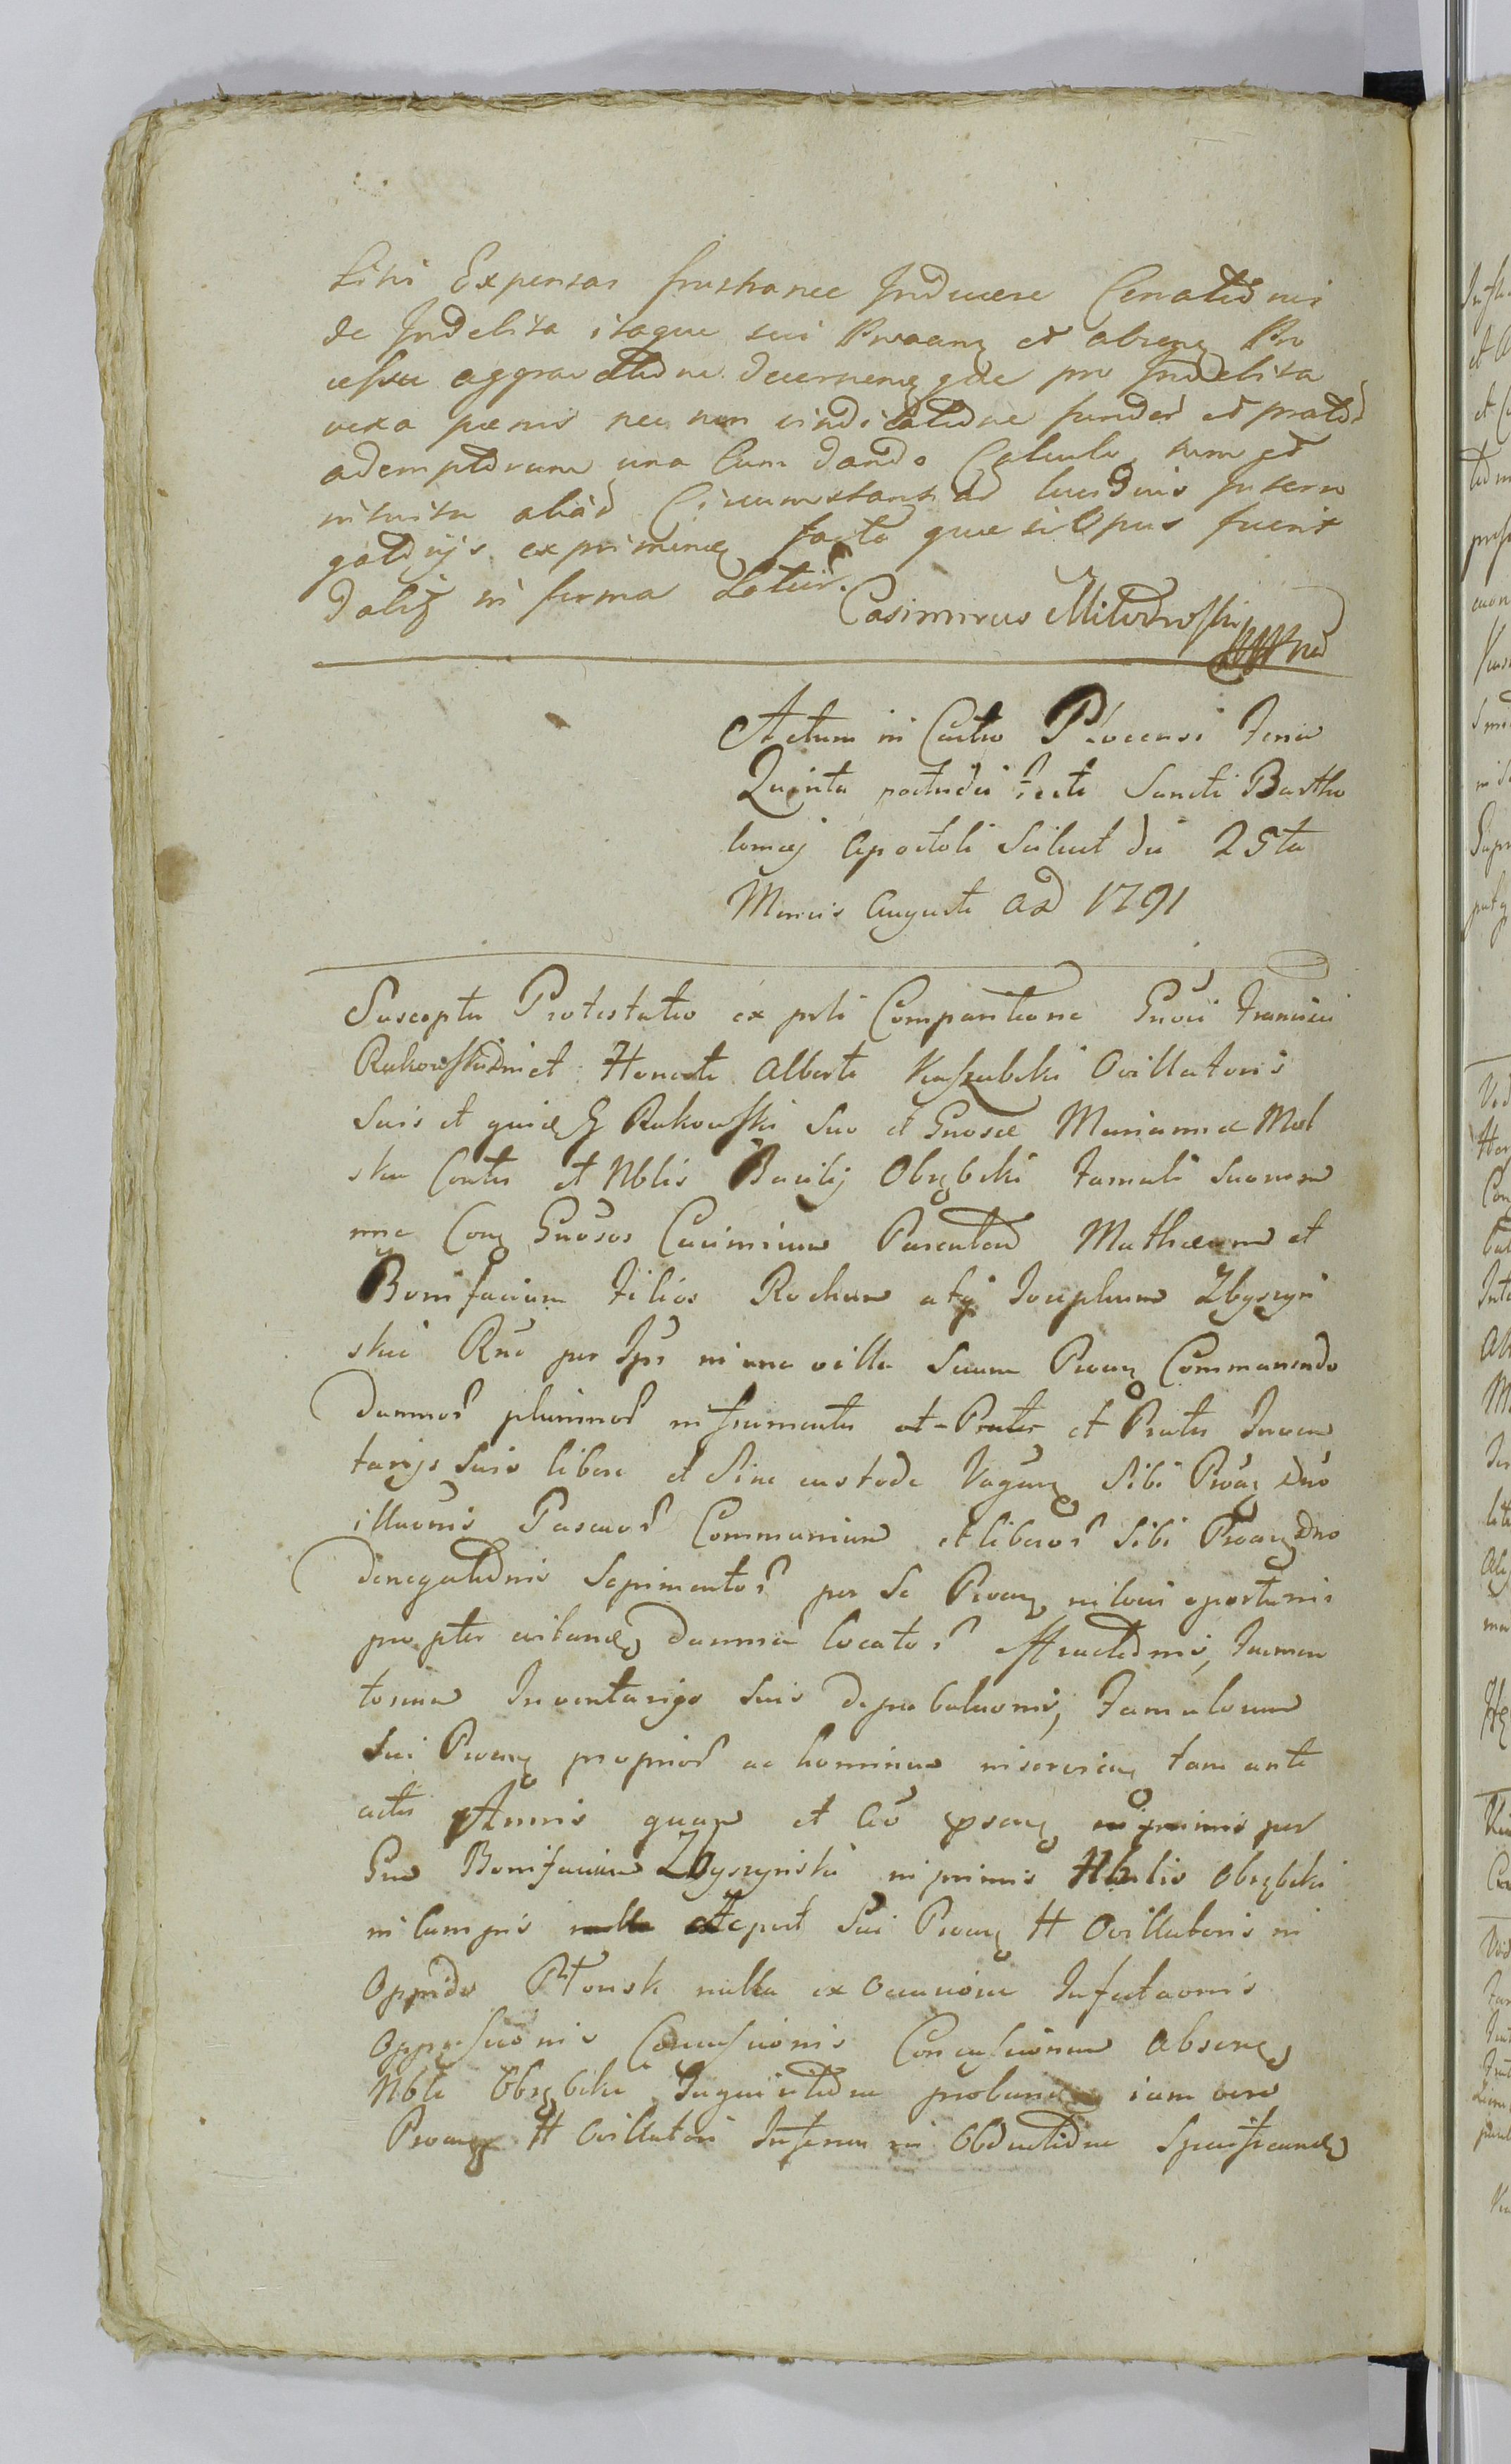 Litis Expensas frustranee Inducere Conatidnis
de Indebita itaque sui Proang et absenq Pro
cessu aggravatidne decernenq qde pro Indebita
vexa poenis nec non vindicatidne fundor et prator
ademptorum una Cum dando Calculo, tum et
intuitu aliar Circumstantiar lucidius Interro
gatorijs exprimend facta quae si Opus fuerit
daliq in forma Latior.
Casimirus Milodrowski
Actum in Castro Plocensi Feria
Quinta postridie Festi Sancti Bartho
lomaej Apostoli Scilicet die 25ta
Mensis Augusti AD 1791
Suscepta Protestatio ex prti Comparitione Gnosi Francisci
Rukowski dni et Honesti Alberti Kaszubski Ovillatoris
Suis et quidem G Rukowski Suo et Gnosae Mariannae Mol
ska Contis et Nblis Basilij Obrębski Famuli Suorum
nne Conq Gnosos Casimirum Parentem Mathaeum et
Bonifacium Filios Rochum atq Josephum Zbyszyn
skie Rne per Ips in una villa Suum Proanq Commanendo
damnor plurimor in frumentis et Pratis Inven
tarijs Suis libere et Sine custode Vaganq Sibi Proanq Dno
illaonis Pascuor Communium et liberor Sibi Proanq Dno
denegatidnis Sepimentor per Se Proanq in loci oportunis
propter evitanda damna locator effractidnis, Frumen
torum Inventarijs Suis depabulaonis, Famulorum
Sui Proanq proprior ac hominum in servicia tam ante
actis Annis quam et Ao pseng per
Gno Bonifacium Zbyszynski in primis Nbilis Obrębski
in campis post Sui Proanq H Ovillatoris in
Oppido Płonsk nulla ex occasione Infestaonis
Oppressionis Concussionis Concussionum absenq
Nbli Obrębski Inquisitidne probanda iam vero
Proanq H Ovillatori Inferius in Obductidne Specificanda